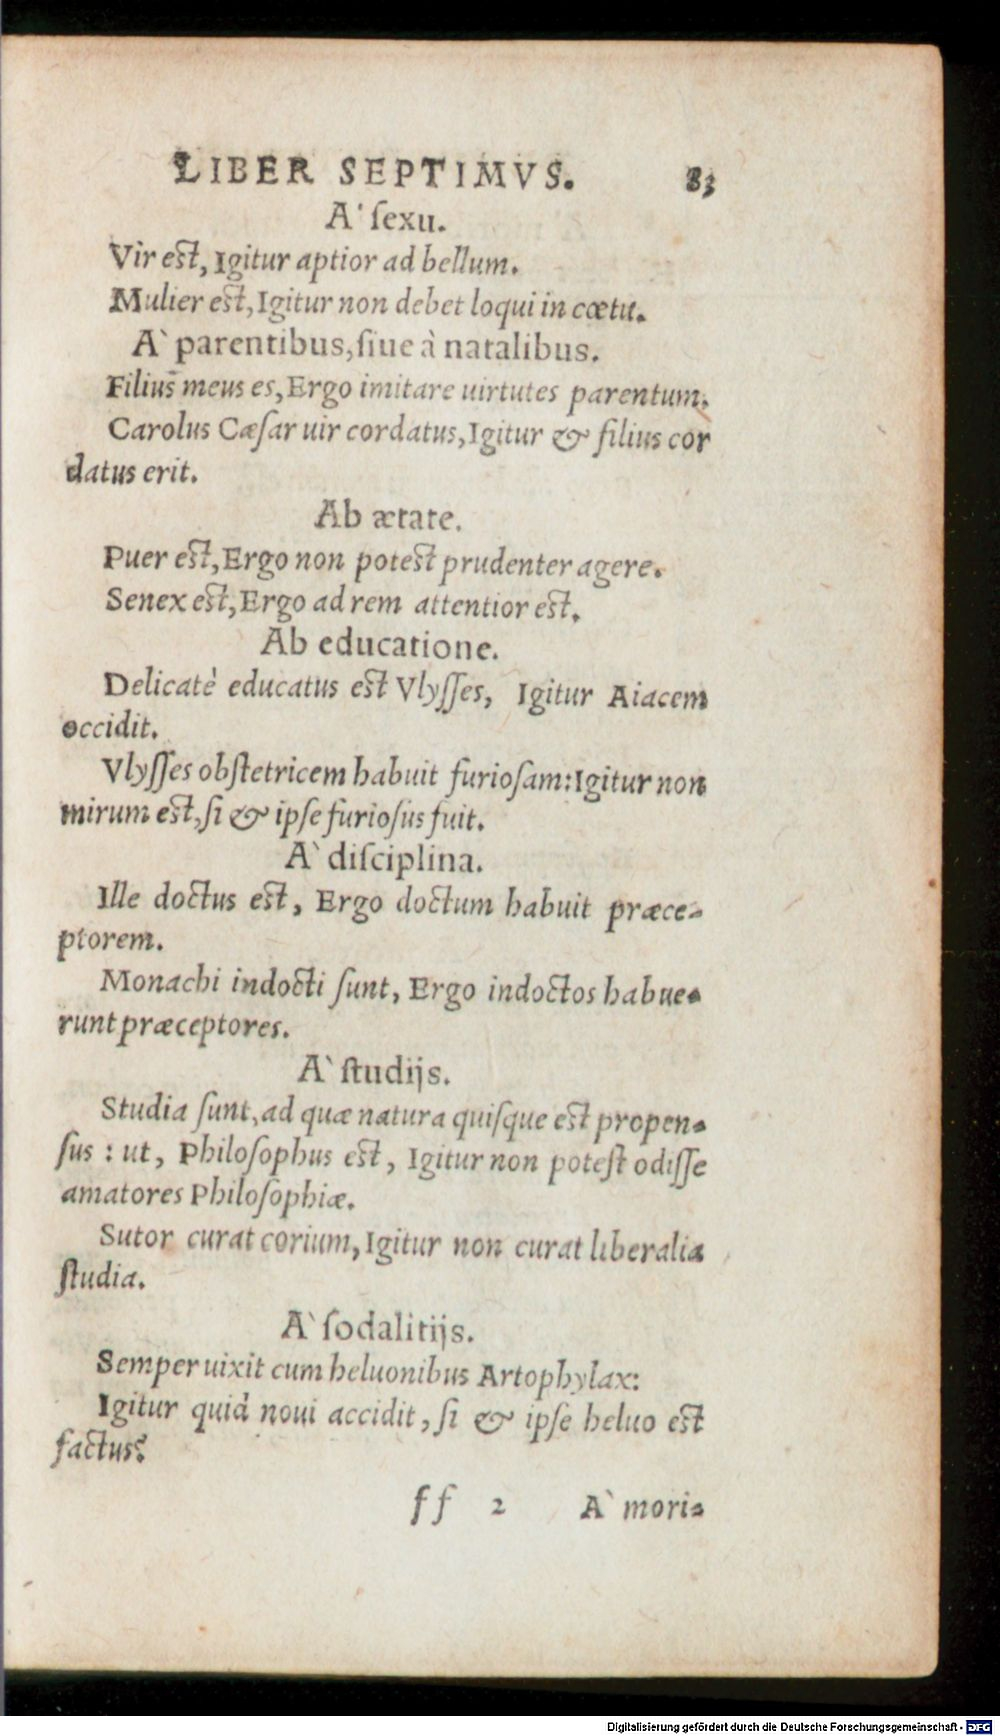 LIBER SEPTIMVS. 83
A' ſexu.
Vir est, Igitur aptior ad bellum.
Mulier est, Igitur non debet loqui in cœtu.
A` parentibus, ſiue à natalibus.
Filius meus es, Ergo imitare uirtutes parentum.
Carolus Cæſar uir cordatus, Igitur & filius cor
datus erit.
Ab ætate.
Puer est, Ergo non potest prudenter agere.
Senex est, Ergo ad rem attentior est.
Ab educatione.
Delicatè educatus est Vlyſſes, Igitur Aiacem
occidit.
Vlyſſes obſtetricem habuit furioſam: Igitur non
mirum est, ſi & ipſe furioſus fuit.
A` diſciplina.
Ille doctus est, Ergo doctum habuit præce-
ptorem.
Monachi indocti ſunt, Ergo indoctos habue-
runt præceptores.
A` ſtudijs.
Studia ſunt, ad quæ natura quiſque est propen-
ſus : ut, Philoſophus est, Igitur non poteſt odiſſe
amatores Philoſophiæ.
Sutor curat corium, Igitur non curat liberalia
ſtudia.
A` ſodalitijs.
Semper uixit cum heluonibus Artophylax:
Igitur quid noui accidit, ſi & ipſe heluo est
factus?
ff 2 A` mori-
Digitalisierung gefördert durch die Deutsche Forschungsgemeinschaft - DFG